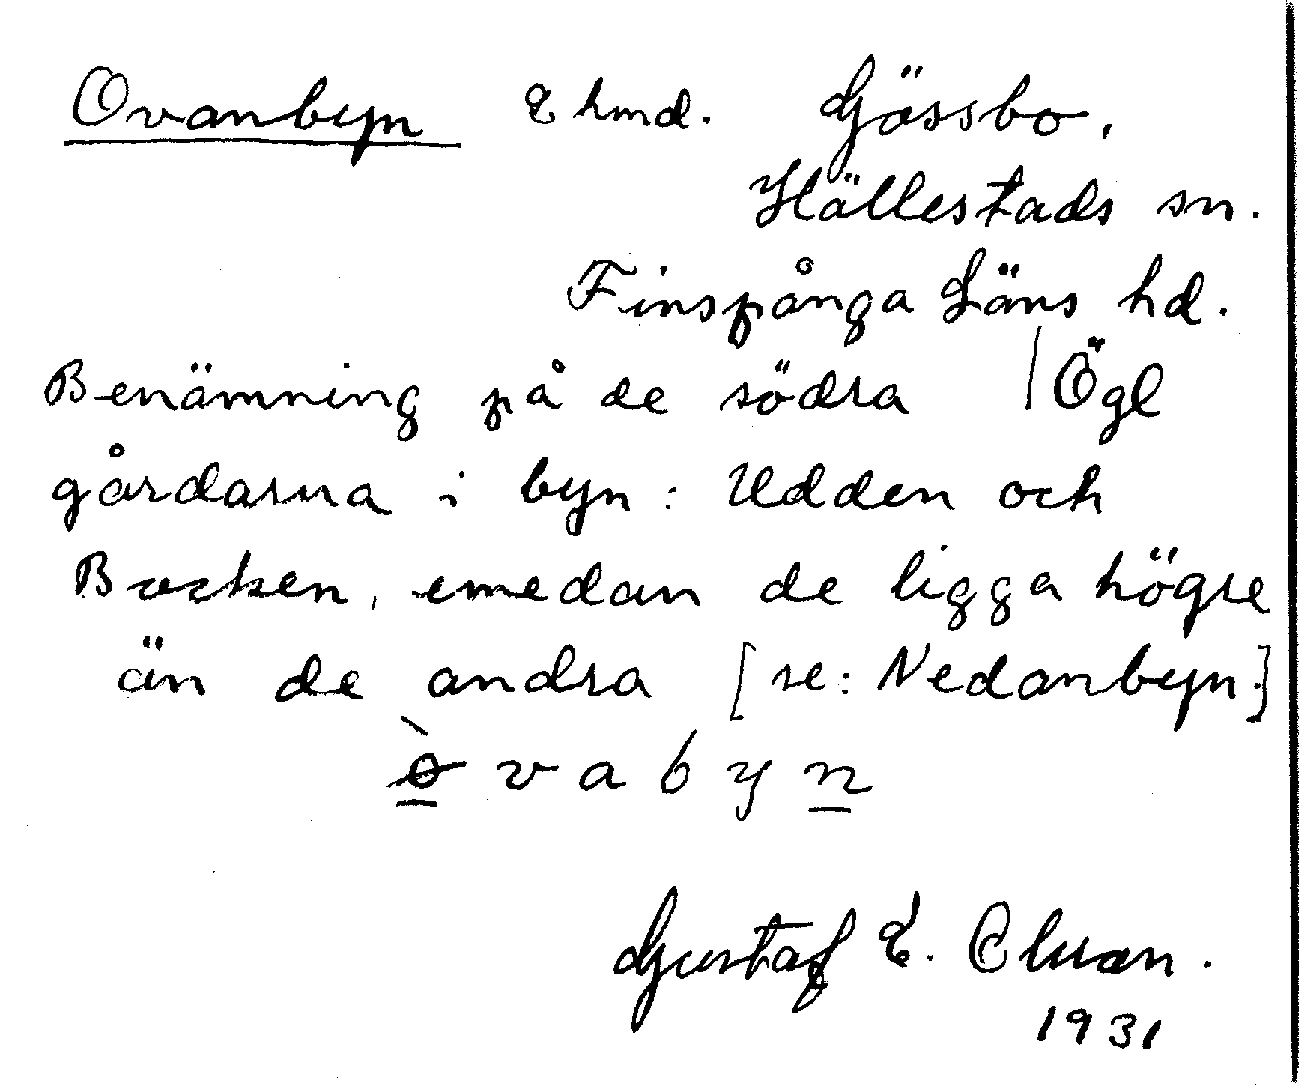 Ovanbyn 2 hmd. Gössbo,
Hällestads sn.
Finspånga Läns hd.
Benämning på de södra / Ögl
gårdarna i byn: Udden och
Backen, emedan de ligga högre
än de andra [se: Nedanbyn.]
òvabyn
Gustaf E.
1931